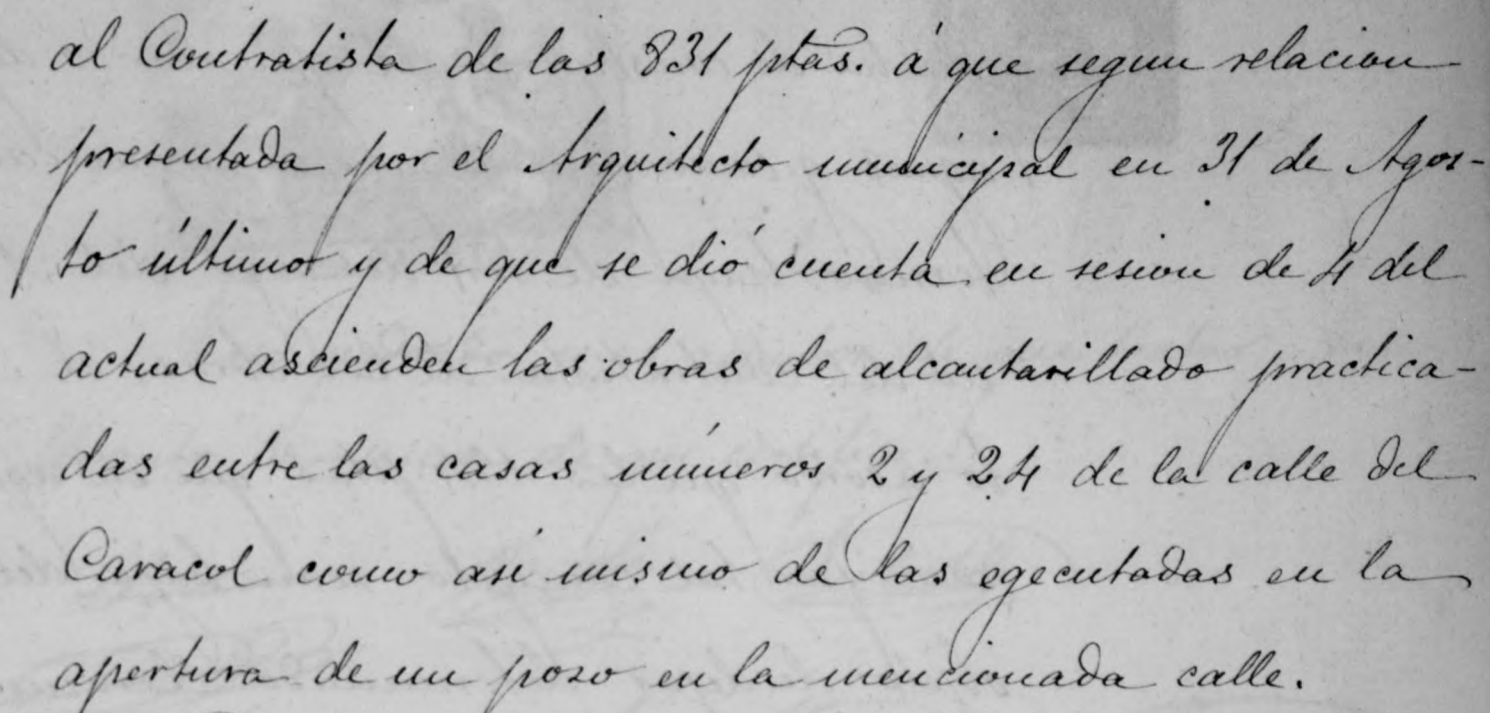 al Contratista de las 831 ptas. á que segun relacion
presentada por el Arquitecto municipal en 31 de Agos-
to último y de que se dió cuenta en sesion de 4 del
actual ascienden las obras de alcantarillado practica-
das entre las casas números 2 y 24 de la calle del
Caracol como asi mismo de las egecutadas en la
apertura de un poso en la mencionada calle.